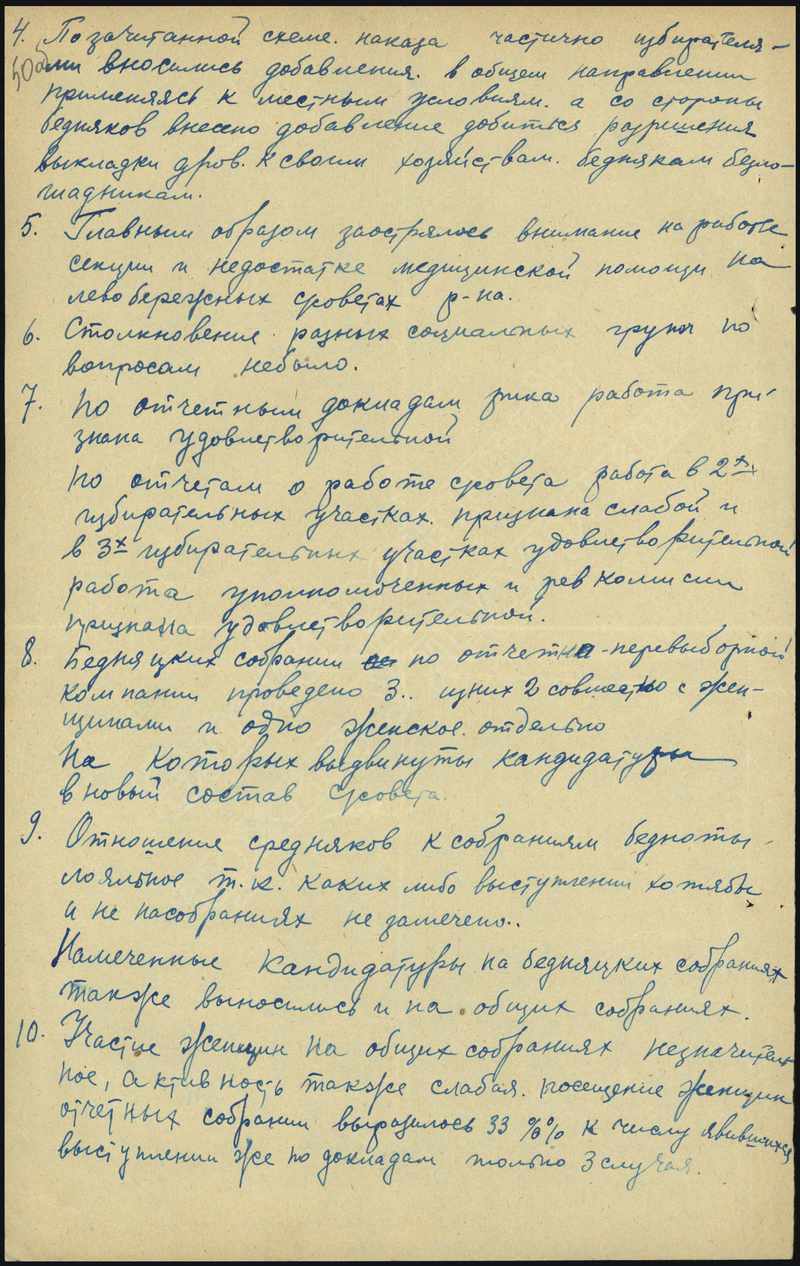 4. По зачитанной схеме. наказа частично избирателя-
50об
ми вносились добавления. в общем направлении
применяясь к местным условиям. а со стороны
бедняков внесено добавление добиться разрешения
выкладки дров. к своим хозяйствам. беднякам безло-
шадникам.
5. Главным образом заострялось внимание на работе
секции и недостатке медицинской помощи на
левобережных с/советах р-на.
6. Столкновение разных социальных групп по
вопросам небыло.
7. По отчетным докладам рика работа при-
знана удовлетворительной
По отчетам о работе с/совета работа в 2х
избирательных участках. признана слабой и
в 3х избирательных участках удовлетворительной
работа уполномоченных и рев комисии
признана удовлетворительной.
8. Бедняцких собрании по отчетно-перевыборной
компании проведено 3.. изних 2 совместно с жен-
щинами и одно женское. отдельно
На которых выдвинуты кандидатуры
в новый состав с/совета.
9. Отношение средняков к собраниям бедноты
лояльное т.к. каких либо выступлении хотябы
и не насобраниях не замечено..
Намеченные кандидатуры на бедняцких собраниях
также выносились и на общих собраниях.
10. Участие женщин на общих собраниях незначитель
ное, активность также слабая. посещение женщин
отчетных собрании выразилось 33 %% к числу явившихся
выступлении же по докладам только 3 случая.